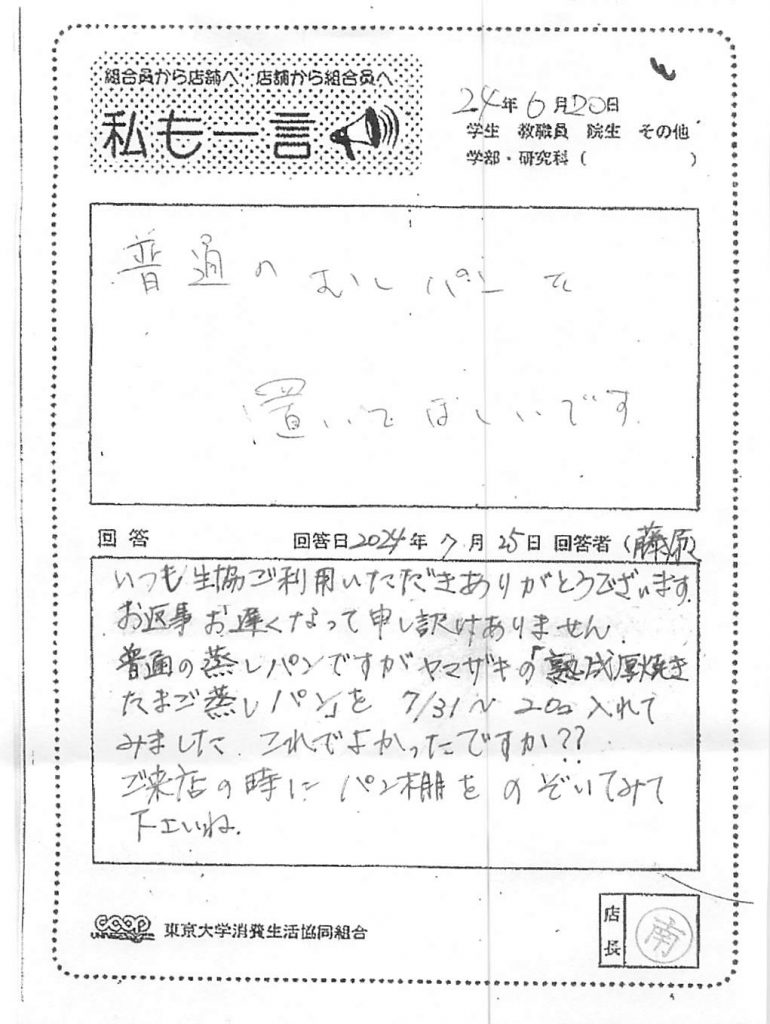 組合員から店舗へ 店舗から組合員へ
私も一言
24年6月20日
学生 教職員 院生 その他
学部・研究科( )
普通のむしパンを
置いてほしいです
回答 回答日2024年7月25日 回答者(藤原)
いつも生協ご利用いただきありがとうございます。
お返事お遅くなって申し訳けありません
普通の蒸しパンですがヤマザキの「熟成厚焼き
たまご蒸しパン」を 7/31〜 2コ 入れて
みました これでよかったですか??
ご来店の時に パン棚をのぞいてみて
下エいね。
coop 東京大学消費生活協同組合
店長 南